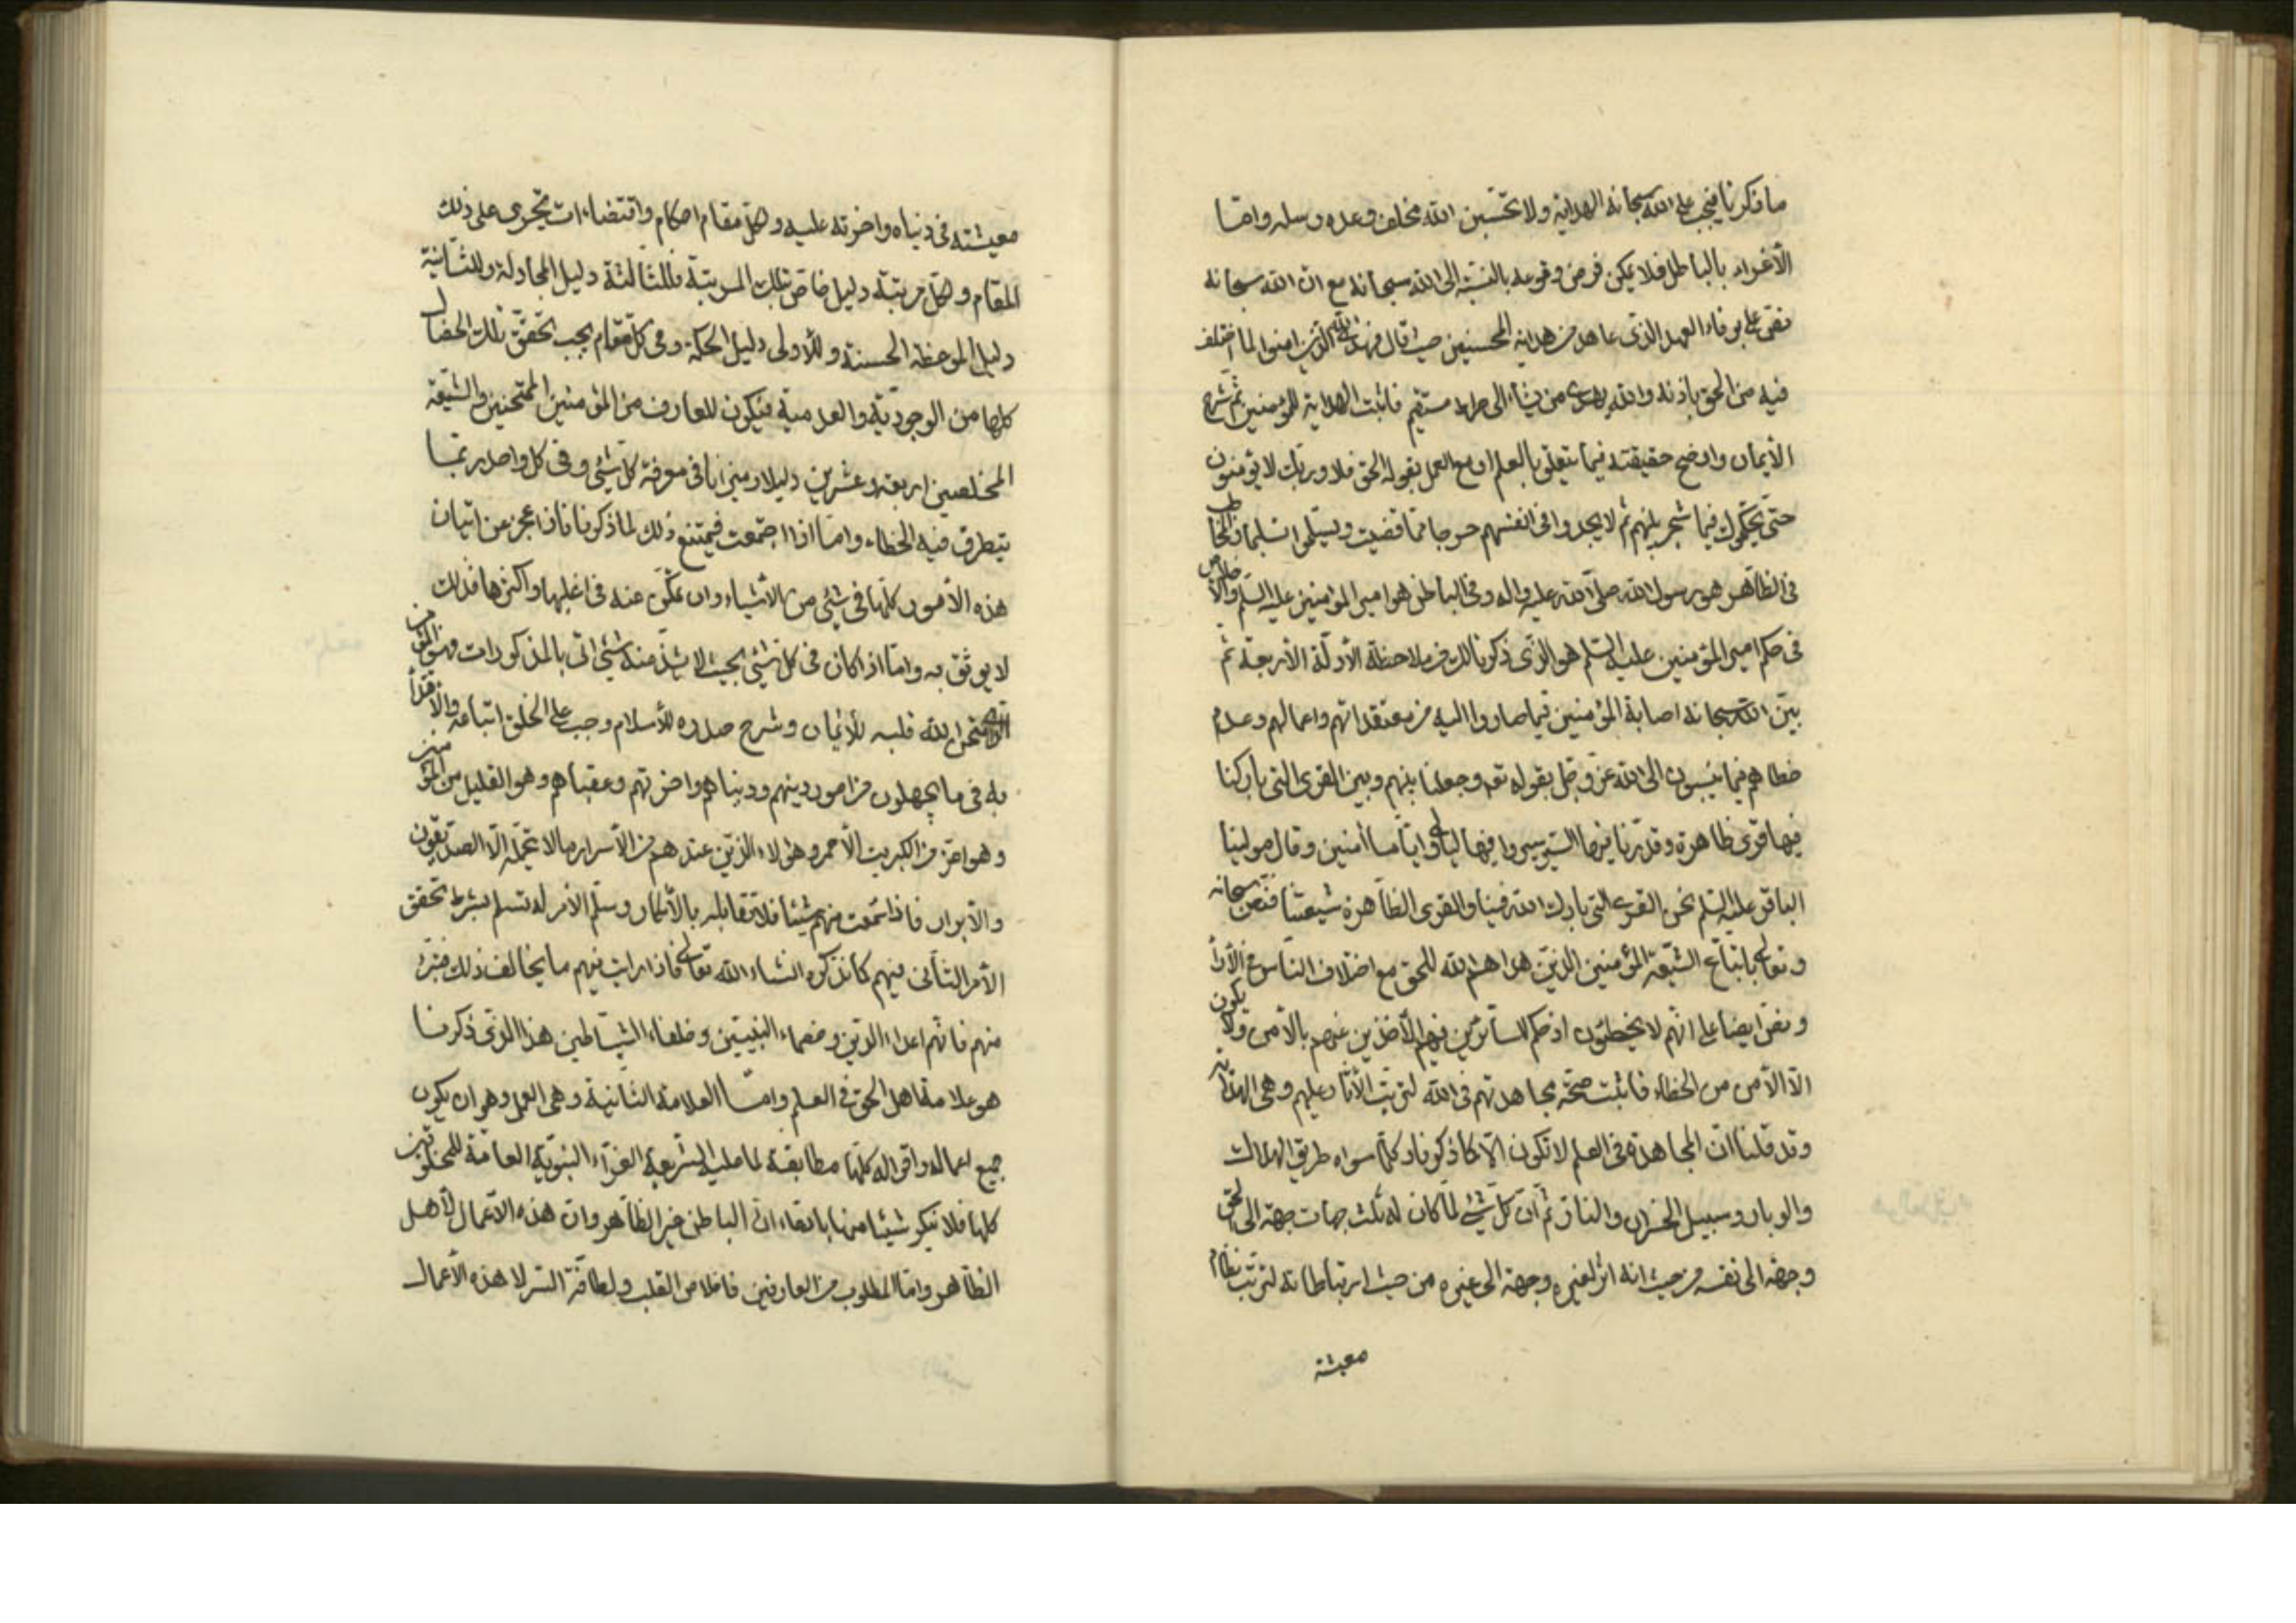 ما ذكرنا فيجب على الله سبحانه الهداية ولا تحسبن الله مخلف وعده رسله واما
الأغراء بالباطل فلا يمكن فرض وقوعه بالنسبة الى الله سبحانه مع ان الله سبحانه
نص على بوفاء العهد الذى عاهد من هداية المحسنين حيث قال فهدى الله الذين امنوا لما اختلف
فيه من الحق باذنه والله يهدى من يشاء الى صراط مستقيم فاثبت الهداية للمؤمنين ثم شرح
الأيمان واوضح حقيقته فيما يتعلق بالعلم او مع العمل بقوله الحق فلا وربك لا يؤمنون
حتى يحكموك فيما شجر بينهم ثم لا يجدوا فى انفسهم حرجا مما قضيت ويسلموا تسليما فالخطاب
فى الظاهر هو رسول الله صلى الله عليه واله وفى الباطن هو امير المؤمنين عليه السلم والأخلاص
فى حكم امير المؤمنين عليه السلم هو الذى ذكرنا لك من ملاحظة الأدلة الأربعة ثم
بين الله سبحانه اصابة المؤمنين فيما صاروا اليه من معتقداتهم واعمالهم وعدم
خطاهم فيما ينسبون الى الله عز وجل بقوله تعه وجعلنا بينهم وبين القرى التى باركنا
فيها قرى ظاهرة وقدرنا فيها السير سيروا فيها ليالى واياما امنين وقال مولينا
الباقر عليه السلم نحن القرى التى بارك الله فينا والقرى الظاهرة شيعتنا فنص سبحانه
وتعالى باتباع الشيعة المؤمنين الذين هداهم الله للحق مع اختلاف الناس فى الأراء
ونص ايضا على انهم لا يخطئون اذ حكم للسائرين فيهم الأخذين عنهم بالأمن ولا يكون
الا الأمن من الخطاء فاثبت صحة مجاهدتهم فى الله لترتب الأثار عليهم وهى الهداية
وقد قلنا ان المجاهدة فى العلم لا تكون الا كما ذكرنا وكلما سواه طريق الهلاك
والوبار وسبيل الخسران والنار ثم ان كل شىء لما كان له ثلث جهات جهة الى الحق
وجهة الى نفسه من حيث انه اثر لغيره وجهة الى غيره من حيث ارتباطاته لترتب نظام
معيشته
معيشته فى دنياه واخرته عليه ولكل مقام احكام واقتضاءات تجرى على ذلك
المقام ولكل مرتبة دليل خاص بتلك المرتبة فللثالثة دليل المجادلة وللثانية
دليل الموعظة الحسنة وللأولى دليل الحكمة وفى كل مقام يجب تحقق تلك الخصال
كلها من الوجودية والعدمية فيكون للعارف من المؤمنين الممتحنين والشيعة
المخلصين اربعة وعشرين دليلا وميزانا فى معرفة كل شىء وفى كل واحد ربما
يتطرق فيه الخطاء واما اذا اجتمعت فيمتنع ذلك لما ذكرنا فاذا عجز عن اتيان
هذه الأمور كلها فى شىء من الأشياء وان تمكن عنه فى اغلبها واكثرها فذلك
لا يوثق به واما اذا كان فى كل شىء بحيث لا يشذ منه شىء اتى بالمذكورات فهو المؤمن
الذى امتحن الله قلبه للأيمان وشرح صدره للأسلام وجب على الخلق اتباعه والأقتداء
به فى ما يجهلون من امور دينهم ودنياهم واخرتهم وعقباهم وهو القليل من المؤمنين
وهو اعز من الكبريت الأحمر وهؤلاء الذين عندهم من الأسرار ما لا تحمله الا الصديقون
والأبرار فاذا سمعت منهم شيئا فلا تقابله بالأنكار وسلم الأمر له تسلم بشرط تحقق
الأمر الثانى فيهم كما نذكره انشاء الله تعالى فاذا رايت فيهم ما يخالف ذلك فتبرء
منهم فانهم اعداء الدين وخصماء النبيين وخلفاء الشياطين هذا الذى ذكرنا
هو علامة اهل الحق فى العلم واما العلامة الثانية وهى العمل وهو ان يكون
جميع اعماله واقواله كلها مطابقة لما عليه الشريعة الغراء النبوية العامة للمخلوقين
كلها فلا ينكر شيئا منها بادعاء ان الباطن غير الظاهر وان هذه الأعمال لأهل
الظاهر واما المطلوب من العارفين فاخلاص القلب ولطافة السر لا هذه الأعمال